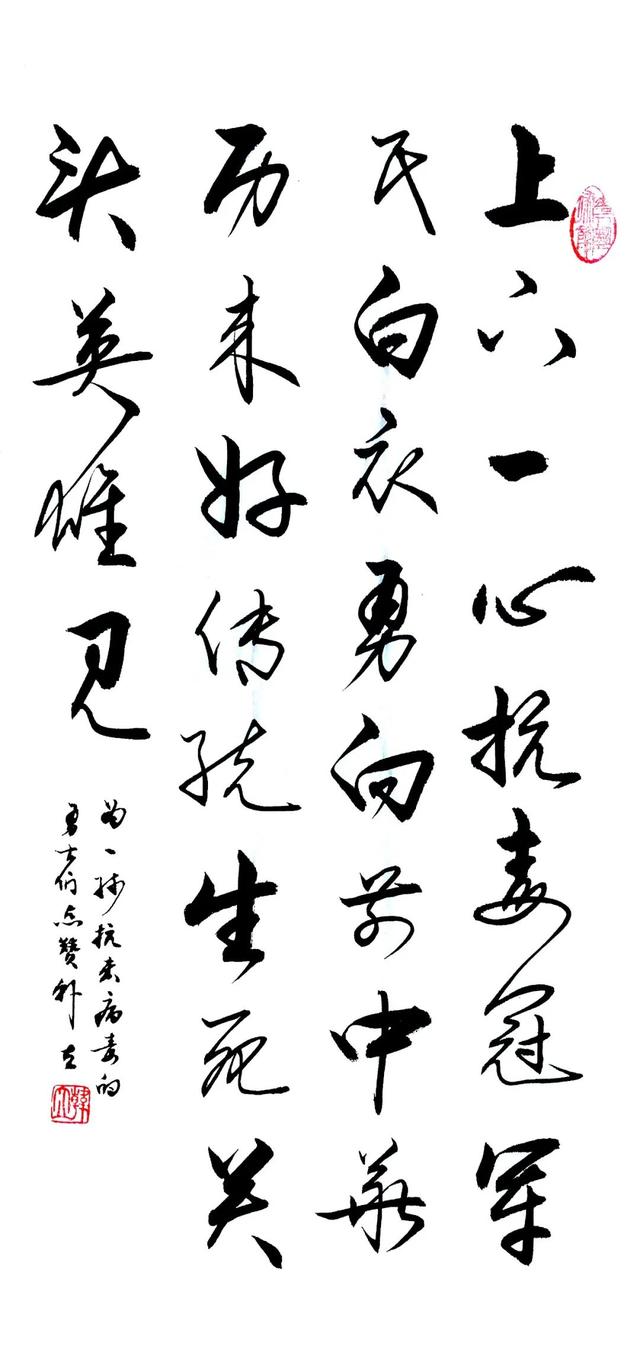 上下一心抗毒冠军
民白衣勇向前中華
历来好传统生死关
头英雄见
为一线抗病毒的
勇士们点赞